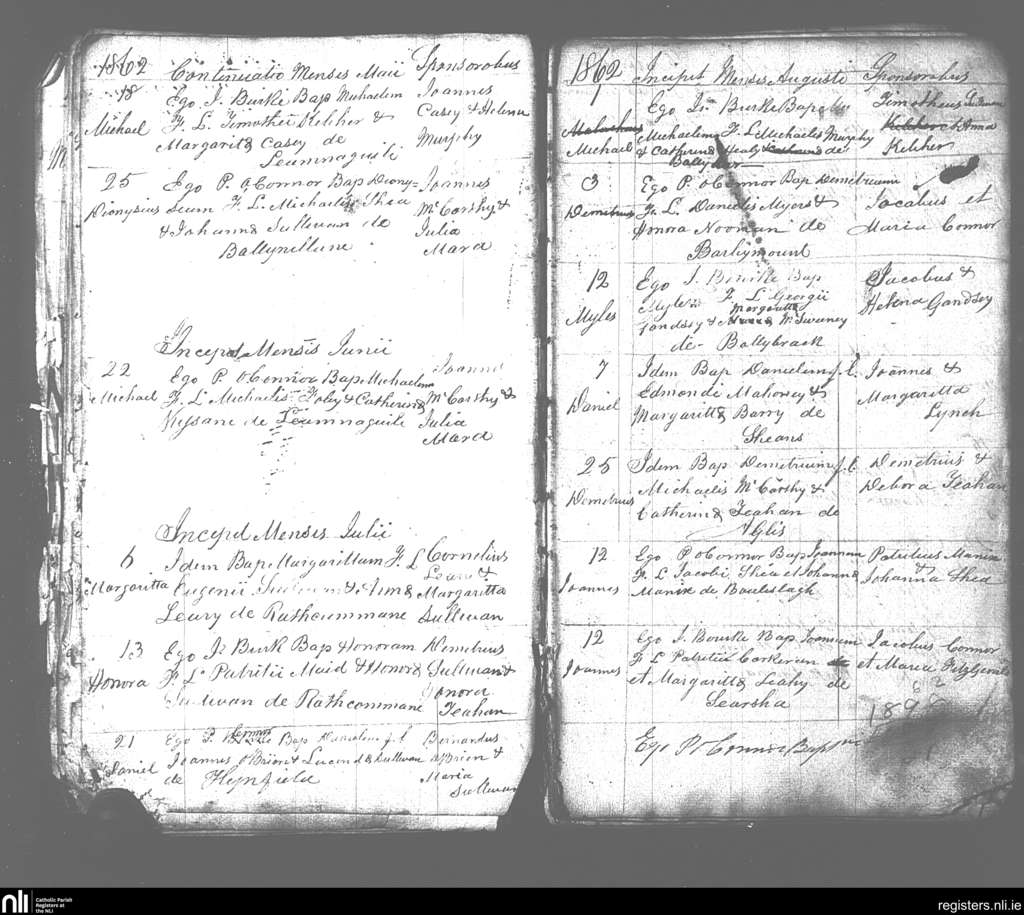 1862 Continuatio Mensis Maii Sponsorobus
18 Ego J. Burke Bap Michaelem Joannes
Michael F. L. Timothei Kelcher & Casey & Helena
Margarita Casey de Murphy
Leamnaguili
25 Ego P. O'Connor Bap Diony= Joannes
Dionysius sium F. L. Michaelis Shea McCarthy &
& Johanna Sullivan de Julia
Ballynillane Mara
Incepd Mensis Junii
22 Ego P. O'Connor Bap Michaelem Joannes
Michael F. L. Michaelis Foley & Catherina McCarthy &
Kissane de Leamnaguili Julia
Mara
Incepd Mensis Julii
6 Idem Bap Margarittam F. L Cornelius
Leary &
Margaritta Eugenii Sullivan & Anna Margaritta
Leary de Rathcommane Sullivan
13 Ego J. Burk Bap Honoram Demetrius
Honora F. L. Patritii Maid & Honora Sullivan &
Sullivan de Rathcommane Honora
Teahan
21 Ego P. Bap Danielem f. l Bernardus
Daniel Joannes OBrion & Sullivan OBrien &
de Maria
Sullivan
1862 Incipit Mensis Augusti Sponsorobus
1 Ego J. Burke Bap Timotheus
Michaelem F. L Michaelis Murphy Kelcher & Anna
Michael & Catherina Healy de Kelcher
3 Ego P. OConnor Bap Demetrium
Demetrius F. L. Danielis Myers & Jacobus et
Honora Noonan de Maria Connor
Barlymount
12 Ego J. Bourke Bap Jacobus &
Myles F L Georgii Helena Gandsey
Margaritta
Gandsey & McSweeney
de Ballybrack
7 Idem Bap Danielem f. l. Joannes &
Daniel Edmondi Mahoney & Margaritta
Margaritta Barry de Lynch
Sheans
25 Idem Bap Demetrium f. l Demetrius &
Demetrius Michaelis McCarthy & Debora Teahan
Catherina Teahan de
Aglis
12 Ego P OConnor Bap Joannem Patritius Manix
Joannes F. L Jacobi Shea et Johanna & Johanna Shea
Manix de
12 Ego J. Bourke Bap Joannem Jacobus Connor
Joannes F L Patritii Corkeran et Maria Fitzgerald
et Margaritta Leahy de
Learsha
Ego P. O Connor Bap
nli Catholic Parish
Registers at
the NLI
registers.nli.ie